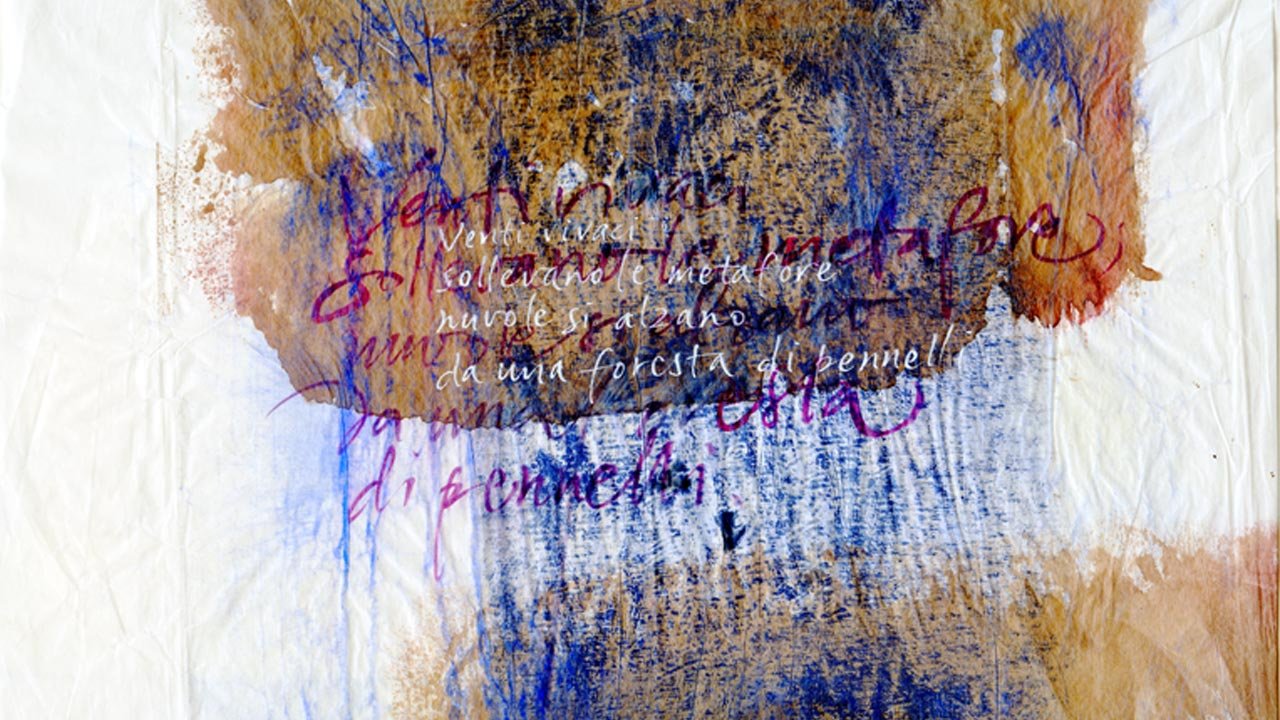 Venti vivaci
sollevano le metafore;
nuvole si alzano
da una foresta
di pennelli.
Venti vivaci
sollevano le metafore
nuvole si alzano
da una foresta di pennelli